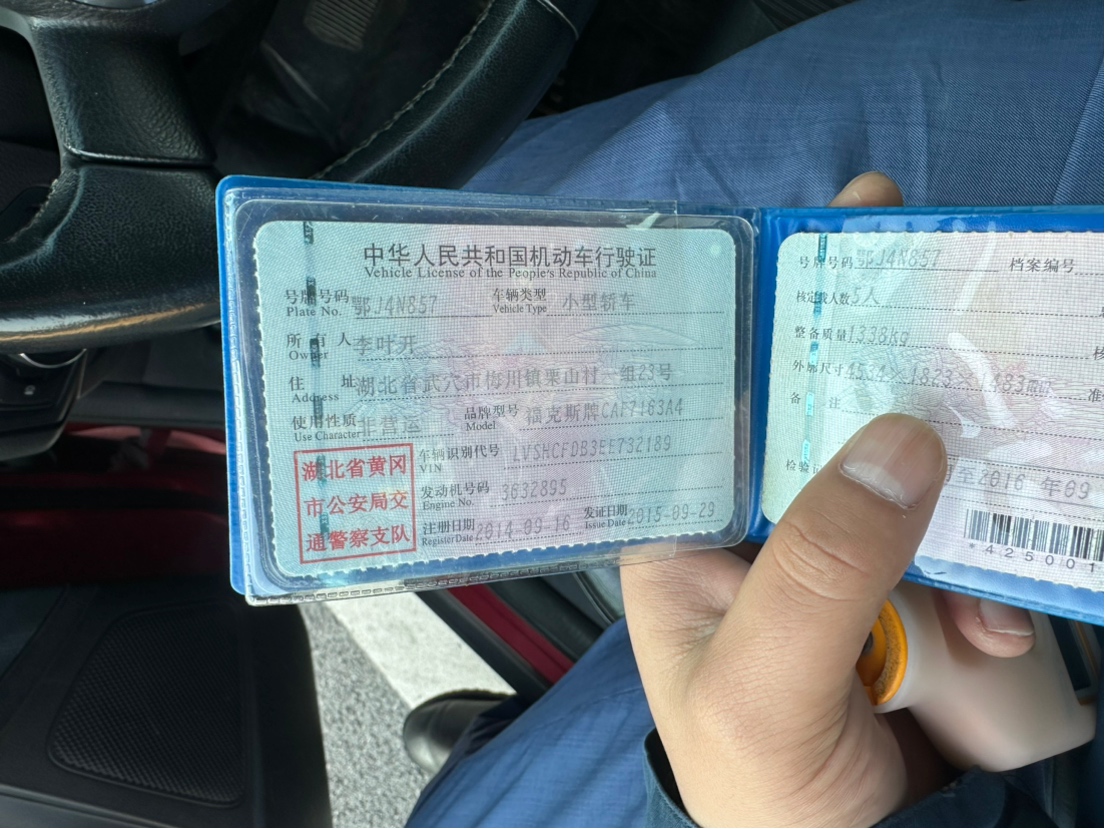 中华人民共和国机动车行驶证
Vehicle License of the People's Republic of China
号牌号码 鄂J4N857 车辆类型 小型轿车
Plate No. Vehicle Type
所有人 李叶开
Owner
住址 湖北省武穴市梅川镇栗山村六组23号
Address
使用性质 非营运 品牌型号 福克斯牌CAF7163A4
Use Character Model
车辆识别代号 LVSHCFDB3EE732189
VIN
发动机号码 3632895
Engine No.
注册日期 2014-09-16 发证日期 2015-09-29
Register Date Issue Date
湖北省黄冈
市公安局交
通警察支队
号牌号码 鄂J4N857 档案编号
核定载人数 5人
整备质量 1338kg 核
外廓尺寸 4534×1823×1483mm 准
备注
检验记
至2016 年09
*425001